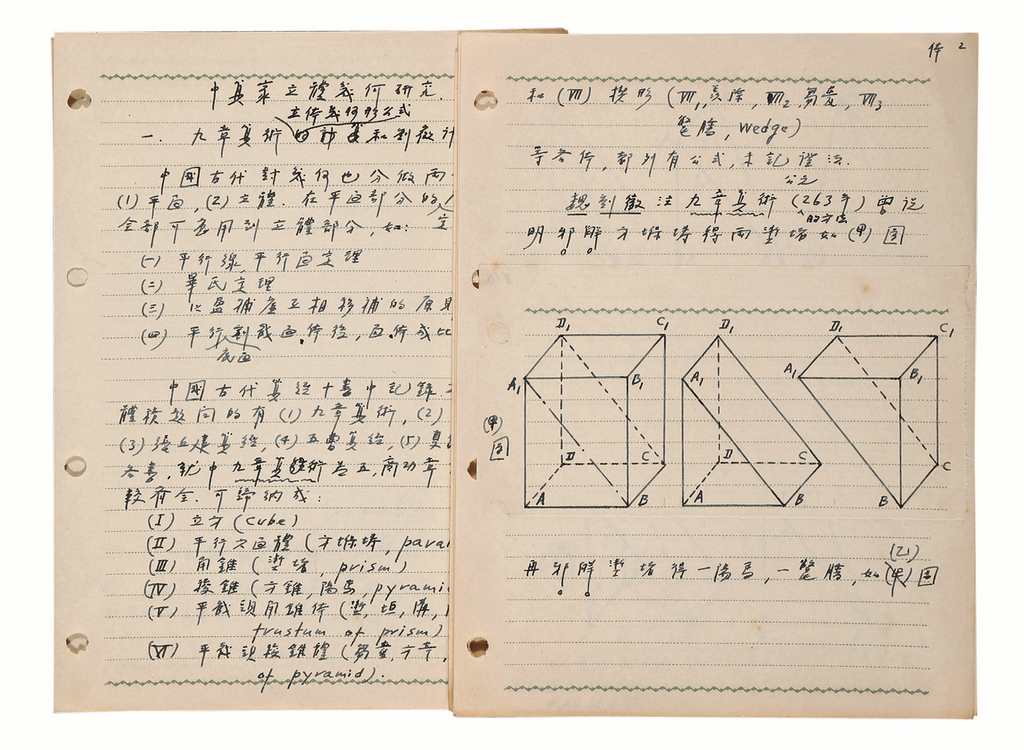 中算家立體幾何研究.
立体幾何形公式
一. 九章算術的計算和劉徽
中國古代對幾何也分做兩
(1) 平面, (2) 立體. 在平面部分的
全部可應用到立體部分, 如:
(一) 平行線, 平行面定理
(二) 畢氏定理
(三) 以盈補虛互相移補的原則
(四) 平行割截面体後, 面体成比
底面
中國古代算經十書中記錄
體積起问的有 (1) 九章算術, (2)
(3) 張丘建算經, (4) 五曹算經, (5) 夏侯
各書, 就中九章算術卷五, 商功章
較齊全. 可歸納成:
(I) 立方 (Cube)
(II) 平行六面體 (方堢壔,
(III) 角錐 (壍堵, prism)
(IV) 稜錐 (方錐, 陽馬, pyramid
(V) 平截頭角錐体 (壍, 垣,
frustum of prism)
(VI) 平截頭稜錐體 (芻童, 方亭,
of pyramid).
体 2
和 (VII) 楔形 (VII₁, 羨除, VII₂, 芻甍, VII₃
鼈臑, wedge)
等各件, 都列有公式, 未記證法.
公元
魏劉徽注九章算術 (263年) 曾說
的方法
明邪解方堢壔得兩壍堵如 (甲) 圖
D₁ C₁ D₁ D₁ C₁
A₁ B₁ A₁ A₁ B₁
(甲)
圖
D C D C C
A B A B B
(乙)
再邪解壍堵得一陽馬, 一鼈臑, 如 (甲) 圖